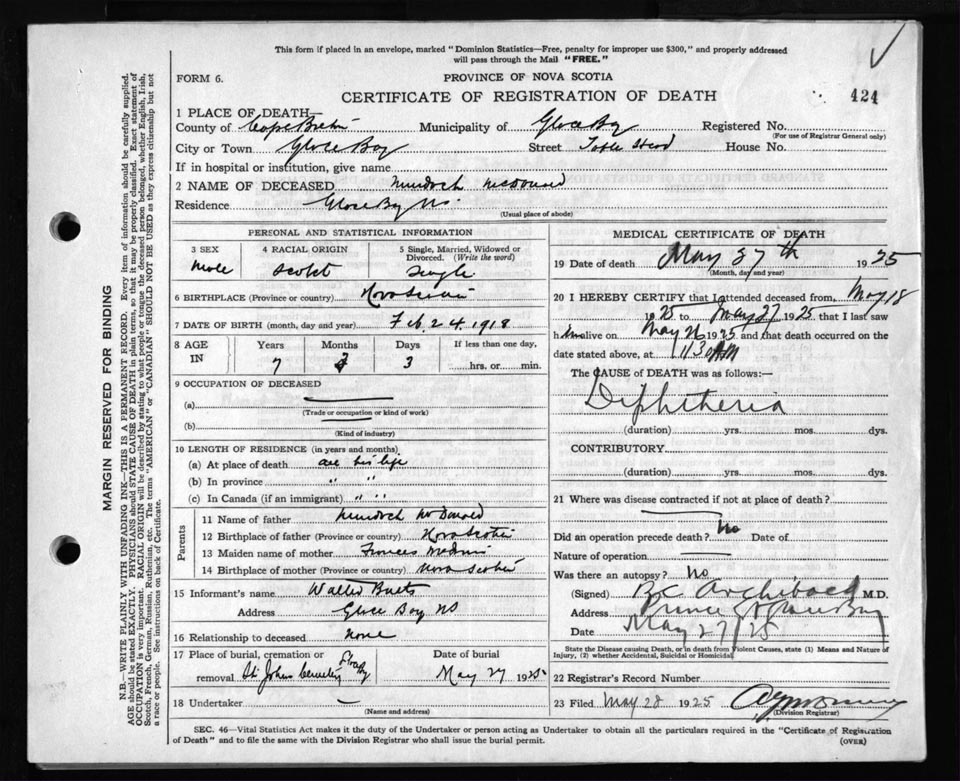 This form if placed in an envelope, marked "Dominion Statistics—Free, penalty for improper use $300," and properly addressed
will pass through the Mail "FREE."
FORM 6.
PROVINCE OF NOVA SCOTIA
CERTIFICATE OF REGISTRATION OF DEATH
424
1 PLACE OF DEATH—
County of Cape Breton Municipality of Glace Bay Registered No.
(For use of Registrar General only)
City or Town Glace Bay Street Table Head House No.
If in hospital or institution, give name
2 NAME OF DECEASED Murdoch McDonald
Residence Glace Bay NS
(Usual place of abode)
PERSONAL AND STATISTICAL INFORMATION
3 SEX 4 RACIAL ORIGIN 5 Single, Married, Widowed or
Divorced. (Write the word)
Male Scotch Single
6 BIRTHPLACE (Province or country) Nova Scotia
7 DATE OF BIRTH (month, day and year) Feb. 24. 1918
8 AGE IN Years Months Days If less than one day,
7 3 3 hrs. or min.
9 OCCUPATION OF DECEASED
(a)
(Trade or occupation or kind of work)
(b)
(Kind of industry)
10 LENGTH OF RESIDENCE (in years and months)
(a) At place of death all his life
(b) In province " "
(c) In Canada (if an immigrant) " "
Parents
11 Name of father Murdoch McDonald
12 Birthplace of father (Province or country) Nova Scotia
13 Maiden name of mother Frances
14 Birthplace of mother (Province or country) Nova Scotia
15 Informant's name Walter
Address Glace Bay NS
16 Relationship to deceased none
17 Place of burial, cremation or Date of burial
removal St Johns Cemetery May 27 1925
18 Undertaker —
(Name and address)
MEDICAL CERTIFICATE OF DEATH
19 Date of death May 27th 1925
(Month, day and year)
20 I HEREBY CERTIFY that I attended deceased from May 18
1925 to May 27 1925 that I last saw
him alive on May 26 1925 and that death occurred on the
date stated above, at 1130 AM
The CAUSE of DEATH was as follows:—
Diphtheria
(duration) yrs. mos. dys.
CONTRIBUTORY
(duration) yrs. mos. dys.
21 Where was disease contracted if not at place of death?
Did an operation precede death? No Date of
Nature of operation
Was there an autopsy? No
(Signed) B.C Archibald M.D.
Address Glace Bay
Date May 27/25
State the Disease causing Death, or in death from Violent Causes, state (1) Means and Nature of
Injury, (2) whether Accidental, Suicidal or Homicidal.
22 Registrar's Record Number
23 Filed May 28 1925
(Division Registrar)
SEC. 46—Vital Statistics Act makes it the duty of the Undertaker or person acting as Undertaker to obtain all the particulars required in the "Certificate of Registration
of Death" and to file the same with the Division Registrar who shall issue the burial permit.
(OVER)
MARGIN RESERVED FOR BINDING
N.B.—WRITE PLAINLY WITH UNFADING INK—THIS IS A PERMANENT RECORD. Every item of information should be carefully supplied.
AGE should be stated EXACTLY. PHYSICIANS should STATE CAUSE OF DEATH in plain terms, so that it may be properly classified. Exact statement of
OCCUPATION is very important. RACIAL ORIGIN will be described by stating to what people or tongue the deceased person belonged, whether English, Irish,
Scotch, French, German, Russian, Ruthenian, etc. The terms "AMERICAN" or "CANADIAN" SHOULD NOT BE USED as they express citizenship but not
a race or people. See instructions on back of Certificate.